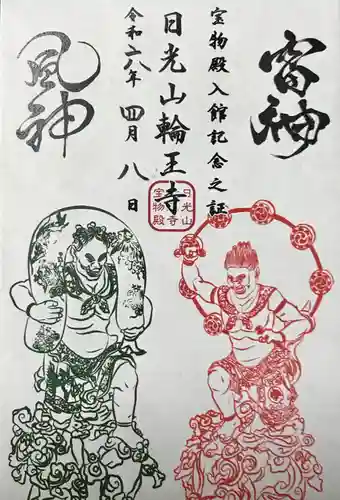 雷神
宝物殿入館記念之証
日光山輪王寺
令和六八年 四月 八日
風神
日光山
寺
宝物殿